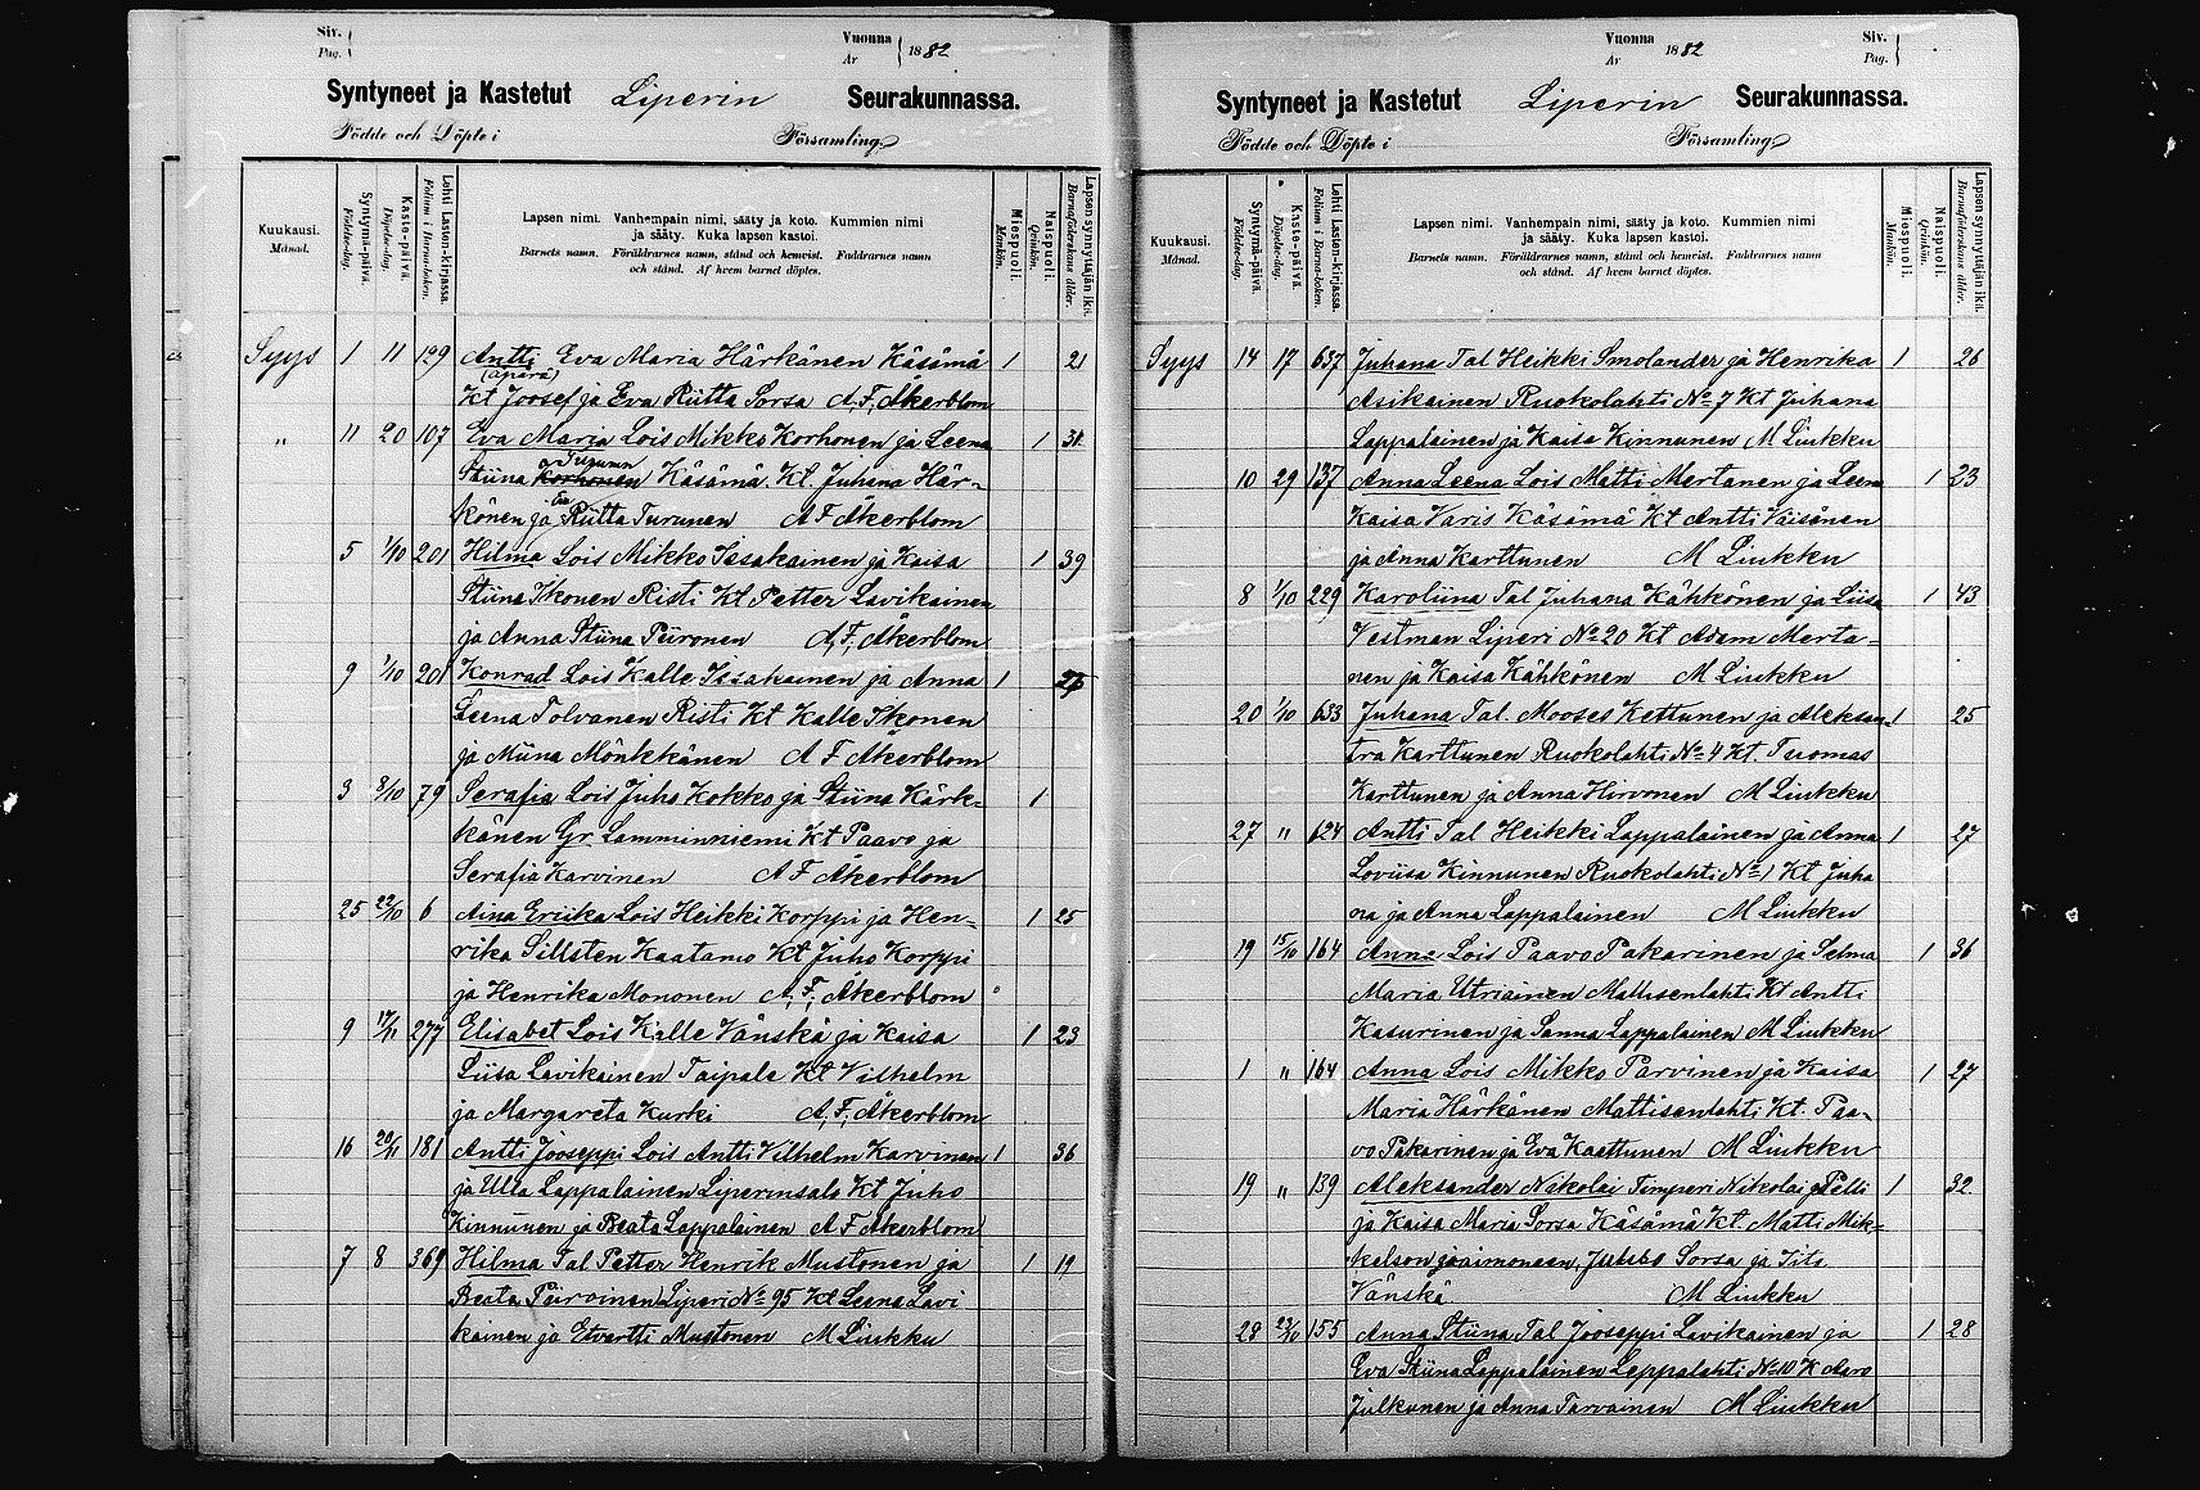 Siv.
Pag.
Vuonna
År
1882
Syntyneet ja Kastetut Liperin Seurakunnassa.
Födde och Döpte i Församling.
Kuukausi.
Månad.
Syntymä-päivä.
Födelse-dag.
Kaste-päivä.
Döpelse-dag.
Lehti Lasten-kirjassa.
Folium i Barna-boken.
Lapsen nimi. Vanhempain nimi, sääty ja koto. Kummien nimi
ja sääty. Kuka lapsen kastoi.
Barnets namn. Föräldrarnes namn, stånd och hemvist. Faddrarnes namn
och stånd. Af hvem barnet döptes.
Miespuoli.
Mankön.
Naispuoli.
Qvinkön.
Lapsen synnyttäjän ikä.
Barnaföderskans ålder.
Syys 1 11 129 Antti Eva Maria Härkänen Käsämä 1 21
(äpärä)
Kt Joosef ja Eva Riitta Sorsa A. F. Åkerblom
" 11 20 107 Eva Maria Lois Mikko Korhonen ja Leena 1 31
Turunen
Stiina Korhonen Käsämä. Kt. Juhana Här-
Eva
könen ja Riitta Turunen A F Åkerblom
5 1/10 201 Hilma Lois Mikko Issakainen ja Kaisa 1 39
Stiina Ikonen Risti Kt Petter Lavikainen
ja Anna Stiina Piironen A. F. Åkerblom
9 1/10 201 Konrad Lois Kalle Issakainen ja Anna 1
Leena Tolvanen Risti Kt Kalle Ikonen
ja Miina Mönkkänen A F Åkerblom
3 8/10 79 Serafia Lois Juho Kokko ja Stiina Kärk- 1
känen Gr. Lamminniemi Kt Paavo ja
Serafia Karvinen A F Åkerblom
25 22/10 6 Aina Eriika Lois Heikki Korppi ja Hen- 1 25
rika Sillsten Kaatamo Kt Juho Korppi
ja Henrika Mononen A. F. Åkerblom
9 17/11 277 Elisabet Lois Kalle Vänskä ja Kaisa 1 23
Liisa Lavikainen Taipale Kt Vilhelm
ja Margareta Kurki A. F. Åkerblom
16 20/11 181 Antti Jooseppi Lois Antti Vilhelm Karvinen 1 36
ja Ulla Lappalainen Liperinsalo Kt Juho
Kinnunen ja Beata Lappalainen A F Åkerblom
7 8 369 Hilma Tal Petter Henrik Mustonen ja 1 19
Beata Piiroinen Liperi No 95 Kt Leena Lavi
kainen ja Etvartti Mustonen M Liukku
Vuonna
År
1882
Siv.
Pag.
Syntyneet ja Kastetut Liperin Seurakunnassa.
Födde och Döpte i Församling.
Kuukausi.
Månad.
Syntymä-päivä.
Födelse-dag.
Kaste-päivä.
Döpelse-dag.
Lehti Lasten-kirjassa.
Folium i Barna-boken.
Lapsen nimi. Vanhempain nimi, sääty ja koto. Kummien nimi
ja sääty. Kuka lapsen kastoi.
Barnets namn. Föräldrarnes namn, stånd och hemvist. Faddrarnes namn
och stånd. Af hvem barnet döptes.
Miespuoli.
Mankön.
Naispuoli.
Qvinkön.
Lapsen synnyttäjän ikä.
Barnaföderskans ålder.
Syys 14 17 637 Juhana Tal Heikki Smolander ja Henrika 1 26
Asikainen Ruokolahti No 7 Kt Juhana
Lappalainen ja Kaisa Kinnunen M Liukku
10 29 137 Anna Leena Lois Matti Mertanen ja Leena 1 23
Kaisa Varis Käsämä Kt Antti Väisänen
ja Anna Karttunen M Liukku
8 1/10 229 Karoliina Tal Juhana Kähkönen ja Liisa 1 43
Vestman Liperi No 20 Kt Adam Merta-
nen ja Kaisa Kähkönen M Liukku
20 1/10 633 Juhana Tal. Mooses Kettunen ja Aleksan- 1 25
tra Karttunen Ruokolahti No 4 Kt. Tuomas
Karttunen ja Anna Hirvonen M Liukku
27 " 624 Antti Tal Heikki Lappalainen ja Anna 1 27
Loviisa Kinnunen Ruokolahti No 1 Kt Juha
na ja Anna Lappalainen M Liukku
19 15/10 164 Anna Lois Paavo Pakarinen ja Selma 1 36
Maria Utriainen Mattisenlahti Kt Antti
Kasurinen ja Sanna Lappalainen M Liukku
1 " 164 Anna Lois Mikko Parvinen ja Kaisa 1 27
Maria Härkänen Mattisenlahti Kt. Paa-
vo Pakarinen ja Eva Kaattunen M Liukku
19 " 139 Aleksander Nikolai Timperi Nikolai Pelli 1 32
ja Kaisa Maria Sorsa Käsämä Kt. Matti Mik-
kelson ja Sorsa ja
Vänskä M Liukku
28 155 Anna Stiina Tal Jooseppi Lavikainen ja 1 28
Eva Stiina Lappalainen Leppälahti No 10 K Aaro
Julkunen ja Anna Tarvainen M Liukku